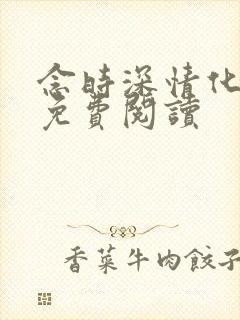 念時深情化
免費閱讀
香菜牛肉餃子